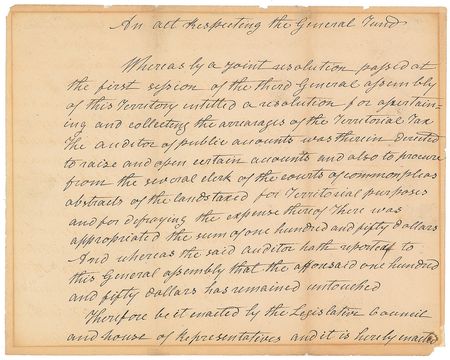 An act Respecting the General Fund
Whereas by a joint resolution passed at
the first session of the third General assembly
of this Territory entitled a resolution for asertain-
ing and collecting the arrearages of the Territorial Tax
The auditor of public accounts was therein directed
to raise and open certain accounts and also to procure
from the several clerk of the courts of common pleas
abstracts of the lands taxed for Territorial purposes
and for defraying the expense hereof There was
appropriated the sum of one hundred and fifty dollars
And whereas the said auditor hath reported to
this General assembly that the afforsaid one hundred
and fifty dollars has remained untouched
Therefore be it enacted by the Legislative Council
and house of Representatives and it is hereby enacted